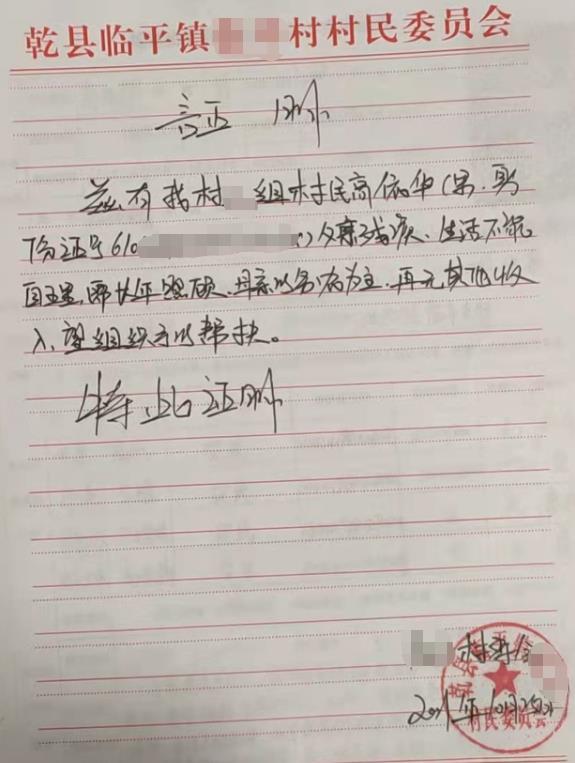 乾县临平镇 村村民委员会
证明
兹有我村 组村民高 华(男、身
份证号610 )父亲残疾、生活不能
自理,需长年照顾、母亲以务农为主、再无其他收
入、望组织予以帮扶。
特此证明
村委会
20 年10月25日
村民委员会